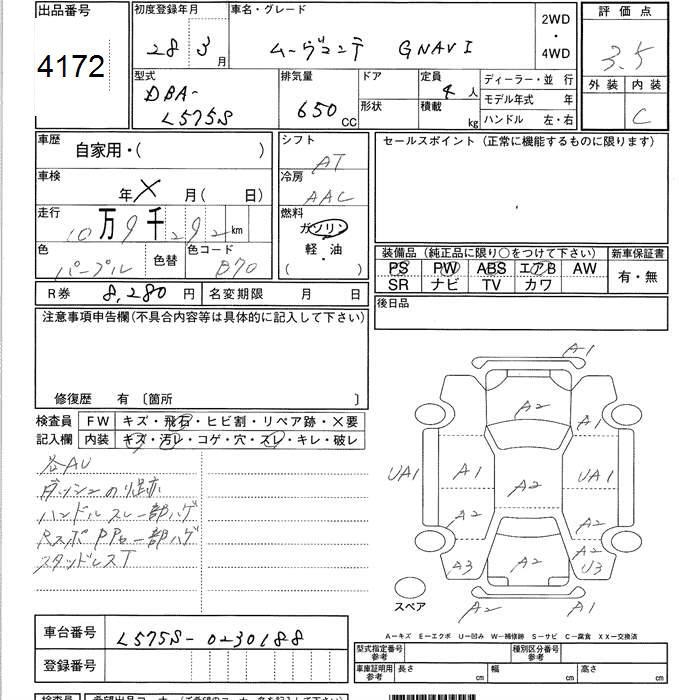 出品番号 初度登録年月 車名・グレード 2WD ・ 4WD 評価点
4172 28 3月 ムーヴコンテ GNAVI 3.5
外装 内装
C
型式 排気量 ドア 定員 4人 ディーラー・並 行
DBA- L575S 650cc 形状 積載 kg モデル年式 年
ハンドル 左・右
車歴 自家用・( )
シフト AT
セールスポイント (正常に機能するものに限ります)
車検 年 × 月( 日)
冷房 AAC
走行 10万9千292km
燃料 ガソリン 軽・油 ( )
色 パープル 色替 色コード P70
装備品 (純正品に限り○をつけて下さい) 新車保証書
PS PW ABS エアB AW 有・無
SR ナビ TV カワ
R券 8,280円 名変期限 月 日
後日品
注意事項申告欄(不具合内容等は具体的に記入して下さい)
修復歴 有 〔箇所 〕
検査員 FW キズ・飛石・ヒビ割・リペア跡・×要
記入欄 内装 キズ・汚レ・コゲ・穴・スレ・キレ・破レ
各AU
ダッシュのり跡
ハンドルスレ一部ハゲ
一部ハゲ
スタッドレスT
A1
A2 A1
UA1 A1 A2 UA1
A2 A2
A3 A2 A2 U3
スペア A2 A1
A-キズ E-エクボ U-凹み W-補修跡 S-サビ C-腐食 XX-交換済
車台番号 L575S-0230188
登録番号
型式指定番号 参考 種別区分番号 参考
車庫証明用 参考 長さ cm 幅 cm 高さ cm
検査員 希望出品コーナー(ご希望のコーナー名を記入して下さい)